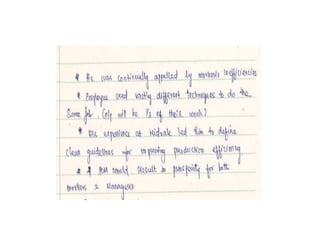 * He was continually appalled by workers inefficiencies
* Employee used vastly different techniques to do the
Same job. ( will be 1/3 of their work)
* His experience at Midvale led him to define
clear guidelines for improving production efficiency
* would result in prosperity for both
workers & Managers